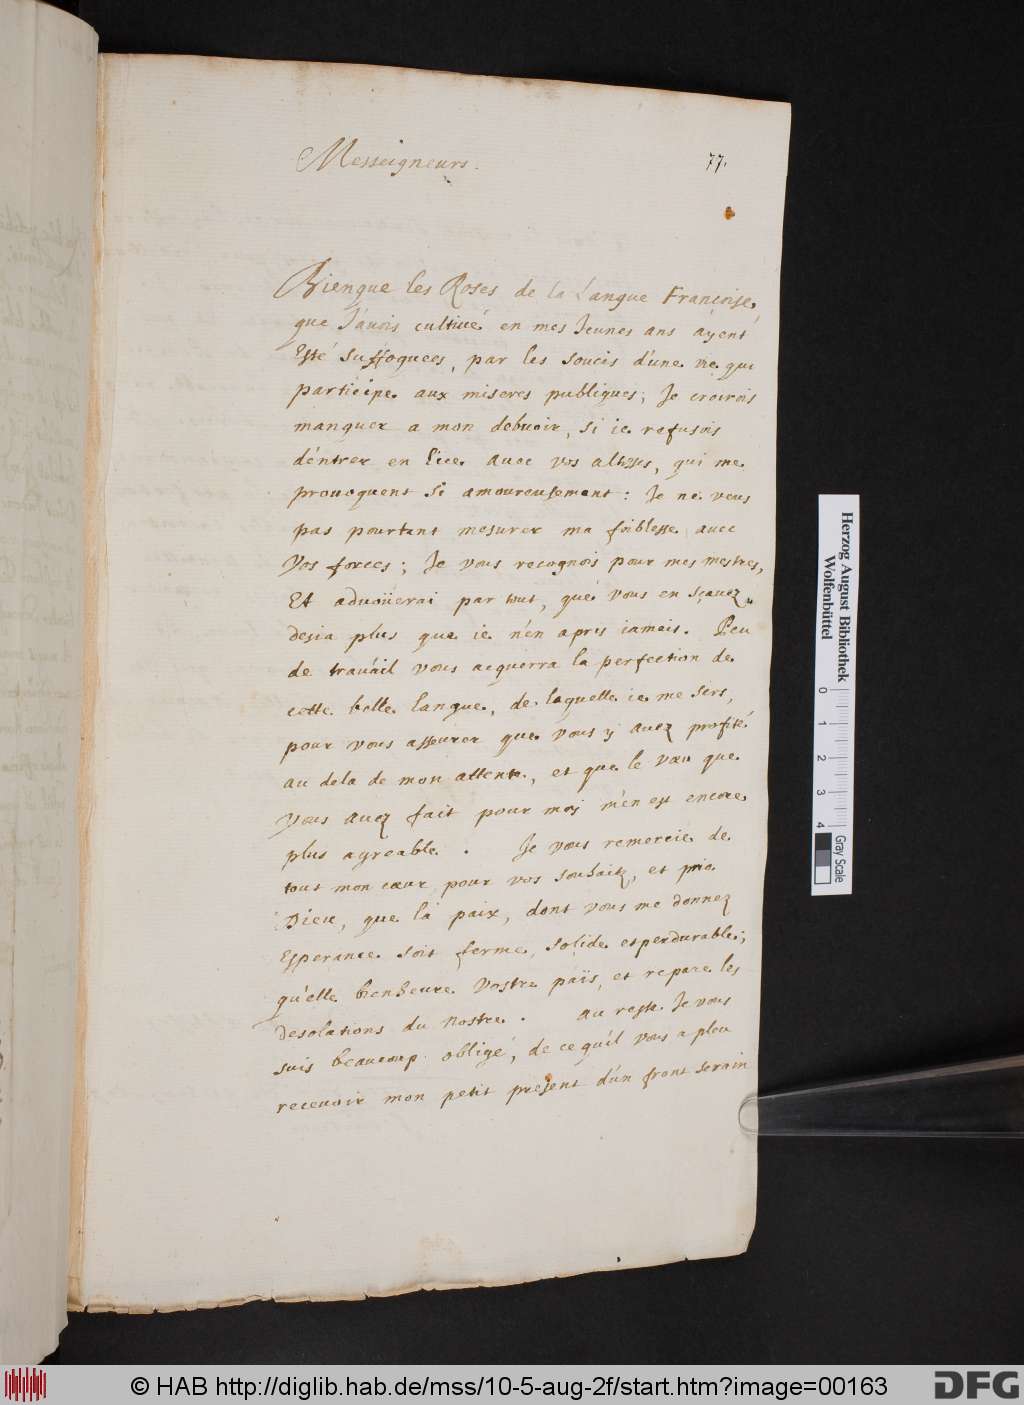 Messeigneurs.
77.
Bienque les Roses de la Langue Françoise,
que J'auois cultiué en mes Jeunes ans ayent
Esté suffoquees, par les soucis d'une vie qui
participe aux miseres publiques; Je croirois
manquer a mon debuoir, si ie refusois
d'entrer en lice auec vos altesses, qui me
prouoquent si amoureusement: Je ne veus
pas pourtant mesurer ma foiblesse auec
Vos forces; Je vous recognois pour mes mestres,
Et aduoüerai par tout, que vous en sçauez
desia plus que ie n'en apris iamais. Peu
de trauail vous acquerra la perfection de
cette belle langue, de laquelle ie me sers,
pour vous asseurer que vous y auez profité
au dela de mon attente, et que le vœu que
Vous auez fait pour moj m'en est encore
plus agreable. Je vous remercie de
tout mon cœur pour vos souhaitz, et prie
Dieu, que la paix, dont vous me donnez
Esperance soit ferme, solide et perdurable;
qu'elle bienheure Vostre païs, et repare les
desolations du Nostre. au reste Je vous
suis beaucoup obligé, de ce qu'il vous a pleu
receuoir mon petit present d'un front serain
Herzog August Bibliothek
Wolfenbüttel
0 1 2 3 4
Gray Scale
© HAB http://diglib.hab.de/mss/10-5-aug-2f/start.htm?image=00163
DFG